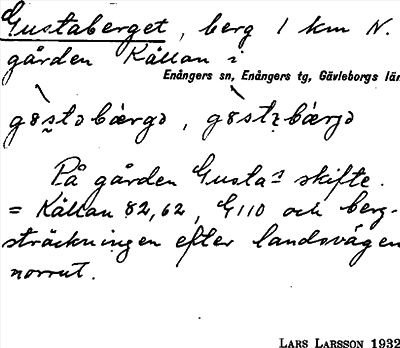 Gustaberget, berg 1 km N.
gården Källan i
Enångers sn, Enångers tg, Gävleborgs län
På gården Gustas skifte.
= Källan 82,62, G110 och berg-
sträckningen efter landsvägen
norrut.
LARS LARSSON 1932